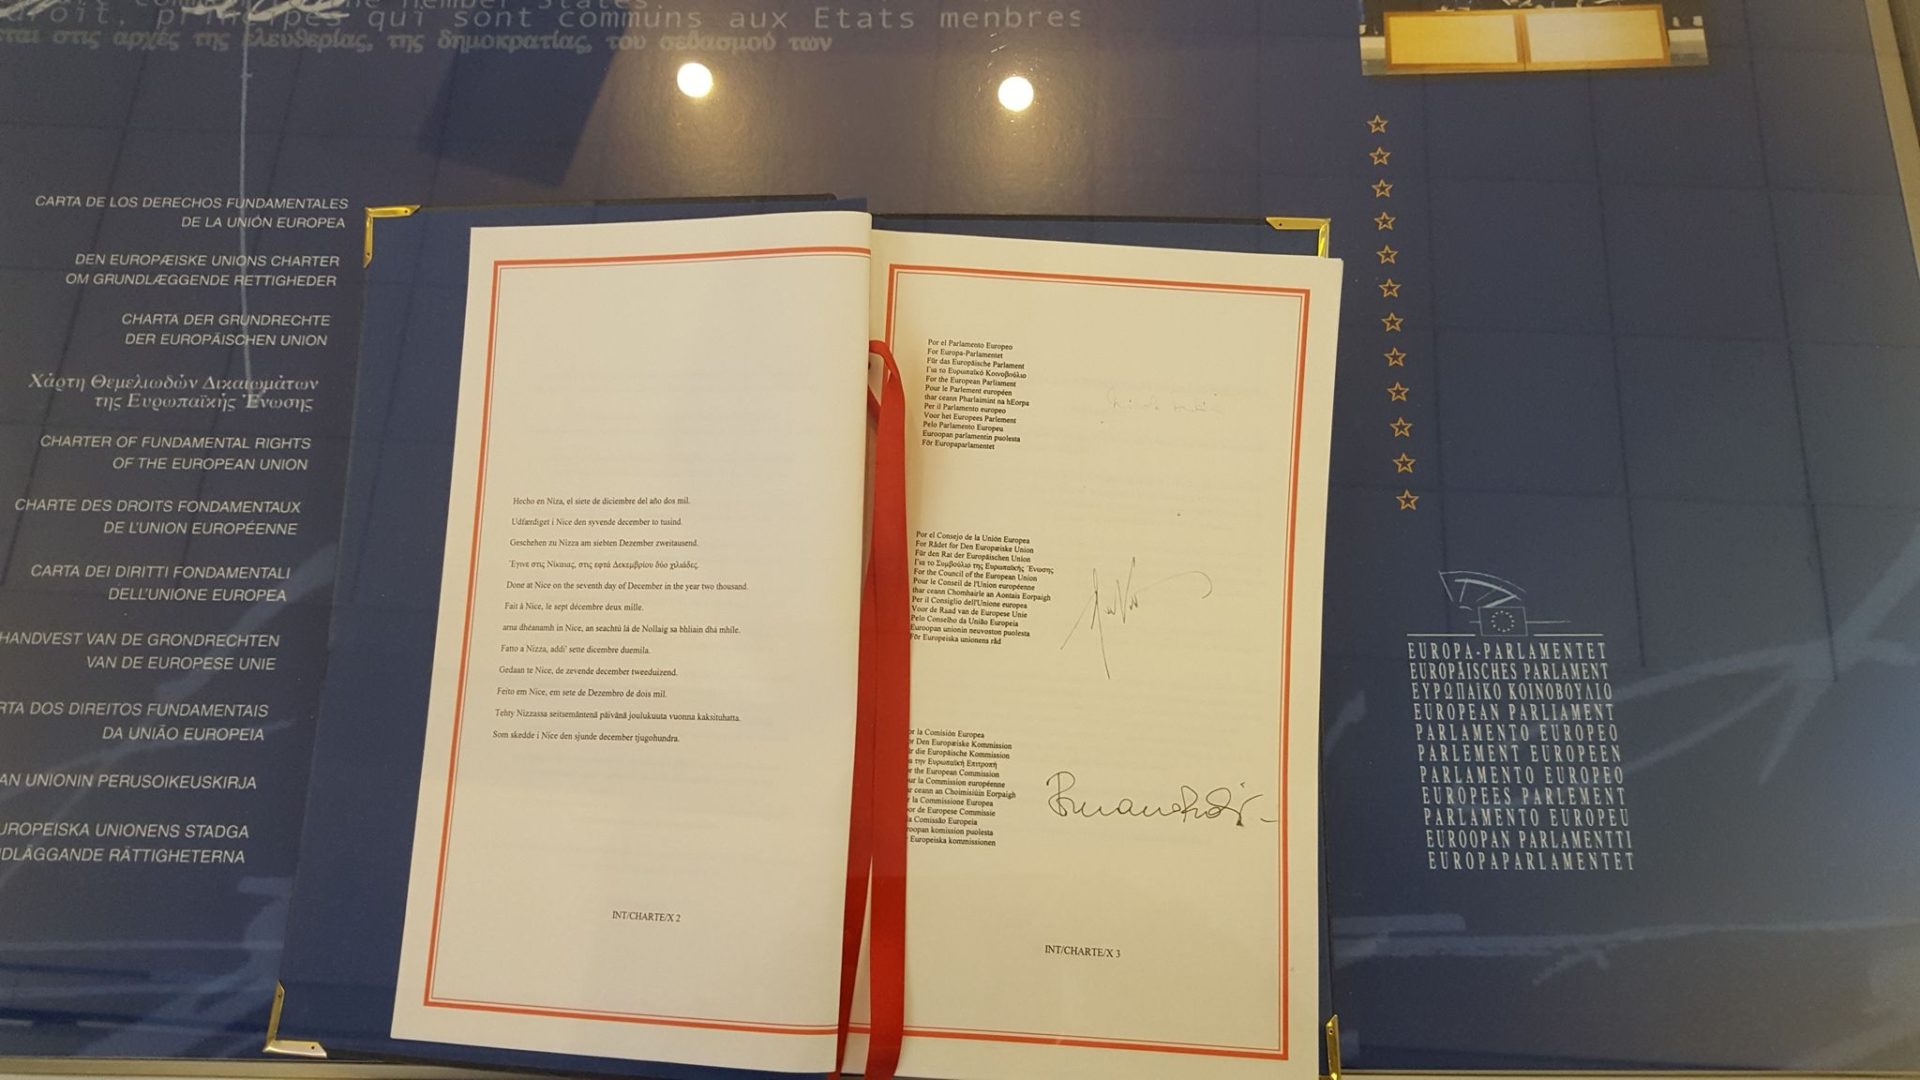 droit, principes qui sont communs aux Etats menbres
εται στις αρχές της ελευθερίας, της δημοκρατίας, του σεβασμού των
CARTA DE LOS DERECHOS FUNDAMENTALES
DE LA UNIÓN EUROPEA
DEN EUROPÆISKE UNIONS CHARTER
OM GRUNDLÆGGENDE RETTIGHEDER
CHARTA DER GRUNDRECHTE
DER EUROPÄISCHEN UNION
Χάρτη Θεμελιωδών Δικαιωμάτων
της Ευρωπαϊκής Ένωσης
CHARTER OF FUNDAMENTAL RIGHTS
OF THE EUROPEAN UNION
CHARTE DES DROITS FONDAMENTAUX
DE L'UNION EUROPÉENNE
CARTA DEI DIRITTI FONDAMENTALI
DELL'UNIONE EUROPEA
HANDVEST VAN DE GRONDRECHTEN
VAN DE EUROPESE UNIE
RTA DOS DIREITOS FUNDAMENTAIS
DA UNIÃO EUROPEIA
AN UNIONIN PERUSOIKEUSKIRJA
UROPEISKA UNIONENS STADGA
DLÄGGANDE RÄTTIGHETERNA
Hecho en Niza, el siete de diciembre del año dos mil.
Udfærdiget i Nice den syvende december to tusind.
Geschehen zu Nizza am siebten Dezember zweitausend.
Έγινε στις Νίκαιας, στις εφτά Δεκεμβρίου δύο χιλιάδες.
Done at Nice on the seventh day of December in the year two thousand.
Fait à Nice, le sept décembre deux mille.
arna dhéanamh in Nice, an seachtú lá de Nollaig sa bhliain dhá mhíle.
Fatto a Nizza, addì' sette dicembre duemila.
Gedaan te Nice, de zevende december tweeduizend.
Feito em Nice, em sete de Dezembro de dois mil.
Tehty Nizzassa seitsemäntenä päivänä joulukuuta vuonna kaksituhatta.
Som skedde i Nice den sjunde december tjugohundra.
INT/CHARTE/X 2
Por el Parlamento Europeo
For Europa-Parlamentet
Für das Europäische Parlament
Για το Ευρωπαϊκό Κοινοβούλιο
For the European Parliament
Pour le Parlement européen
thar ceann Pharlaimint na hEorpa
Per il Parlamento europeo
Voor het Europees Parlement
Pelo Parlamento Europeu
Euroopan parlamentin puolesta
För Europaparlamentet
Por el Consejo de la Unión Europea
For Rådet for Den Europæiske Union
Für den Rat der Europäischen Union
Για το Συμβούλιο της Ευρωπαϊκής Ένωσης
For the Council of the European Union
Pour le Conseil de l'Union européenne
thar ceann Chomhairle an Aontais Eorpaigh
Per il Consiglio dell'Unione europea
Voor de Raad van de Europese Unie
Pelo Conselho da União Europeia
Euroopan unionin neuvoston puolesta
För Europeiska unionens råd
or la Comisión Europea
or Den Europæiske Kommission
ür die Europäische Kommission
α την Ευρωπαϊκή Επιτροπή
r the European Commission
ur la Commission européenne
r ceann an Choimisiúin Eorpaigh
r la Commissione Europea
or de Europese Commissie
la Comissão Europeia
roopan komission puolesta
Europeiska kommissionen
INT/CHARTE/X 3
EUROPA-PARLAMENTET
EUROPÄISCHES PARLAMENT
ΕΥΡΩΠΑΪΚΟ ΚΟΙΝΟΒΟΥΛΙΟ
EUROPEAN PARLIAMENT
PARLAMENTO EUROPEO
PARLEMENT EUROPEEN
PARLAMENTO EUROPEO
EUROPEES PARLEMENT
PARLAMENTO EUROPEU
EUROOPAN PARLAMENTTI
EUROPAPARLAMENTET